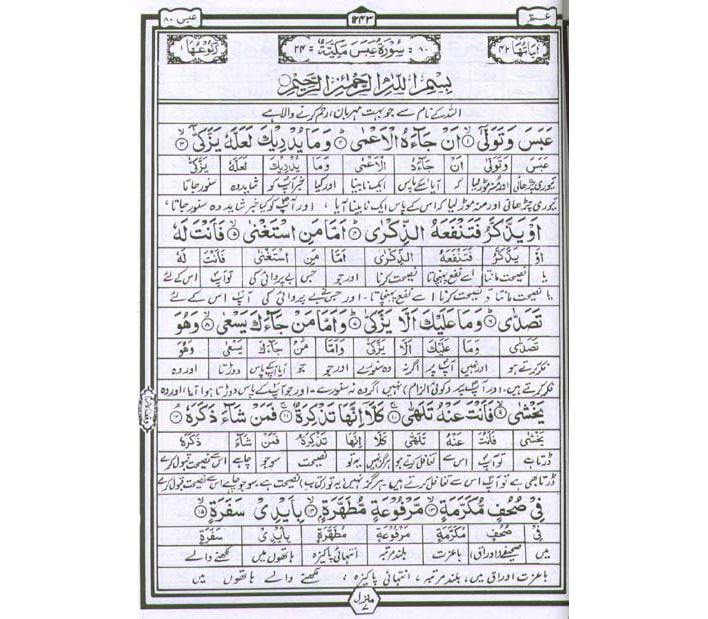 عبس ۸۰
۱۲۴۳
عـم ۳۰
رکوعها ۱
۸۰ = سُورَةُ عَبَسَ مَكِّيَّةٌ = ۲۴
اٰیاتها ۴۲
بِسْمِ اللّٰهِ الرَّحْمٰنِ الرَّحِيْمِ
اللہ کے نام سے جو بہت مہربان، رحم کرنے والا ہے
عَبَسَ وَتَوَلّٰىٓ ۙ۱ اَنْ جَآءَهُ الْاَعْمٰى ؕ۲ وَمَا يُدْرِيْكَ لَعَلَّهٗ يَزَّكّٰىٓ ۙ۳
عَبَسَ وَتَوَلّٰى اَنْ جَآءَهُ الْاَعْمٰى وَمَا يُدْرِيْكَ لَعَلَّهٗ يَزَّكّٰى
تیوری چڑھائی اور منہ موڑ لیا کہ آیا اسکے پاس ایک نابینا اور کیا خبر آپ کو شاید وہ سنور جاتا
تیوری چڑھائی اور منہ موڑ لیا کہ اس کے پاس ایک نابینا آیا ، اور آپ کو کیا خبر شاید وہ سنور جاتا ،
اَوْ يَذَّكَّرُ فَتَنْفَعَهُ الذِّكْرٰى ؕ۴ اَمَّا مَنِ اسْتَغْنٰى ۙ۵ فَاَنْتَ لَهٗ
اَوْ يَذَّكَّرُ فَتَنْفَعَهُ الذِّكْرٰى اَمَّا مَنِ اسْتَغْنٰى فَاَنْتَ لَهٗ
یا نصیحت مانتا اسے نفع پہنچاتا نصیحت کرنا اور جو جس بے پروائی کی تو آپ اس کے لئے
یا نصیحت مانتا تو نصیحت کرنا اسے نفع پہنچاتا ۔ اور جس نے بے پروائی کی آپ اس کے لئے
تَصَدّٰى ؕ۶ وَمَا عَلَيْكَ اَلَّا يَزَّكّٰى ؕ۷ وَاَمَّا مَنْ جَآءَكَ يَسْعٰى ۙ۸ وَهُوَ
تَصَدّٰى وَمَا عَلَيْكَ اَلَّا يَزَّكّٰى وَاَمَّا مَنْ جَآءَكَ يَسْعٰى وَهُوَ
فکر کرتے ہو اور نہیں آپ پر اگر نہ وہ سنورے اور جو جو آیا آپ کے پاس دوڑتا اور وہ
فکر کرتے ہیں، اور آپ پر کوئی الزام نہیں اگر وہ نہ سنورے ۔ اور جو آپ کے پاس دوڑتا ہوا آیا، اور وہ
يَخْشٰى ۙ۹ فَاَنْتَ عَنْهُ تَلَهّٰى ۚ۱۰ كَلَّآ اِنَّهَا تَذْكِرَةٌ ۚ۱۱ فَمَنْ شَآءَ ذَكَرَهٗ ۘ۱۲
يَخْشٰى فَاَنْتَ عَنْهُ تَلَهّٰى كَلَّآ اِنَّهَا تَذْكِرَةٌ فَمَنْ شَآءَ ذَكَرَهٗ
ڈرتا ہے تو آپ اس سے تغافل کرتے ہو ہرگز نہیں یہ تو نصیحت سو جو چاہے اس سے نصیحت قبول کرے
ڈرتا بھی ہے تو آپ اس سے تغافل کرتے ہیں، ہرگز نہیں یہ تو (کتاب) نصیحت ہے سو جو چاہے اس سے نصیحت قبول کرے
فِيْ صُحُفٍ مُّكَرَّمَةٍ ۙ۱۳ مَّرْفُوْعَةٍ مُّطَهَّرَةٍ ۙ۱۴ بِاَيْدِيْ سَفَرَةٍ ۙ۱۵
فِيْ صُحُفٍ مُّكَرَّمَةٍ مَّرْفُوْعَةٍ مُّطَهَّرَةٍ بِاَيْدِيْ سَفَرَةٍ
میں صحیفے (اوراق) باعزت بلند مرتبہ انتہائی پاکیزہ ہاتھوں میں لکھنے والے
باعزت اوراق میں، بلند مرتبہ ، انتہائی پاکیزہ ، لکھنے والے ہاتھوں میں
منزل ۷